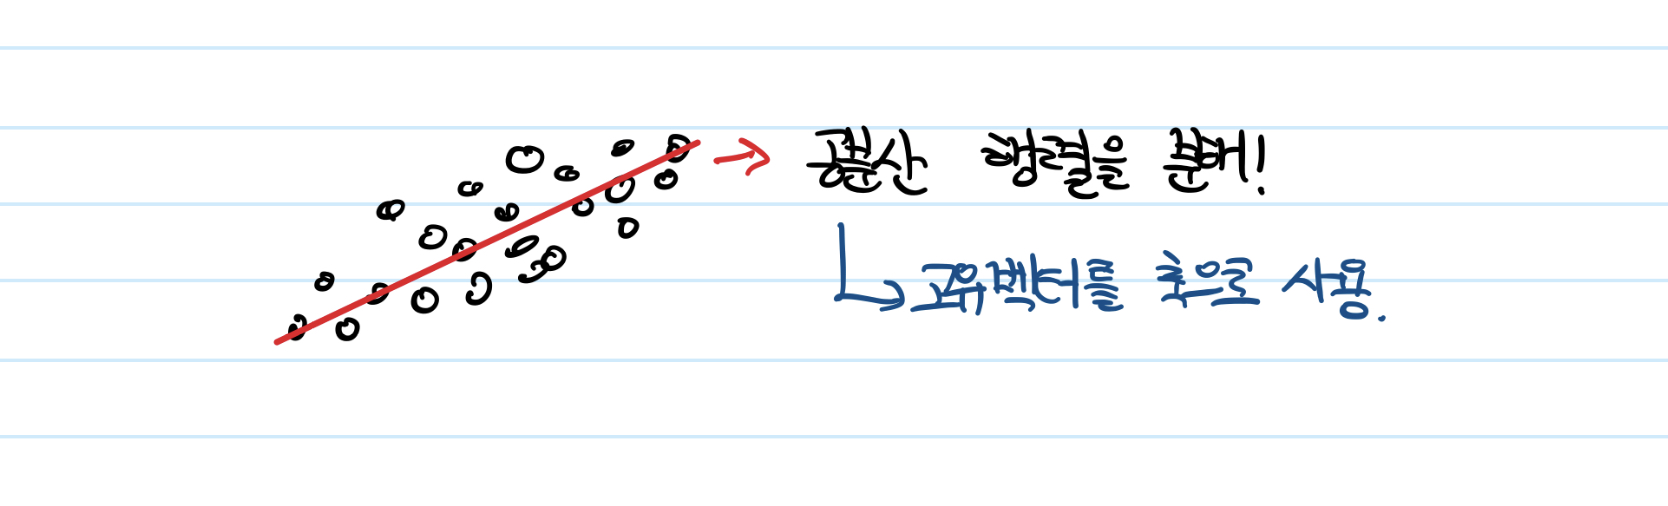 공분산 행렬을 분해!
고유벡터를 축으로 사용.